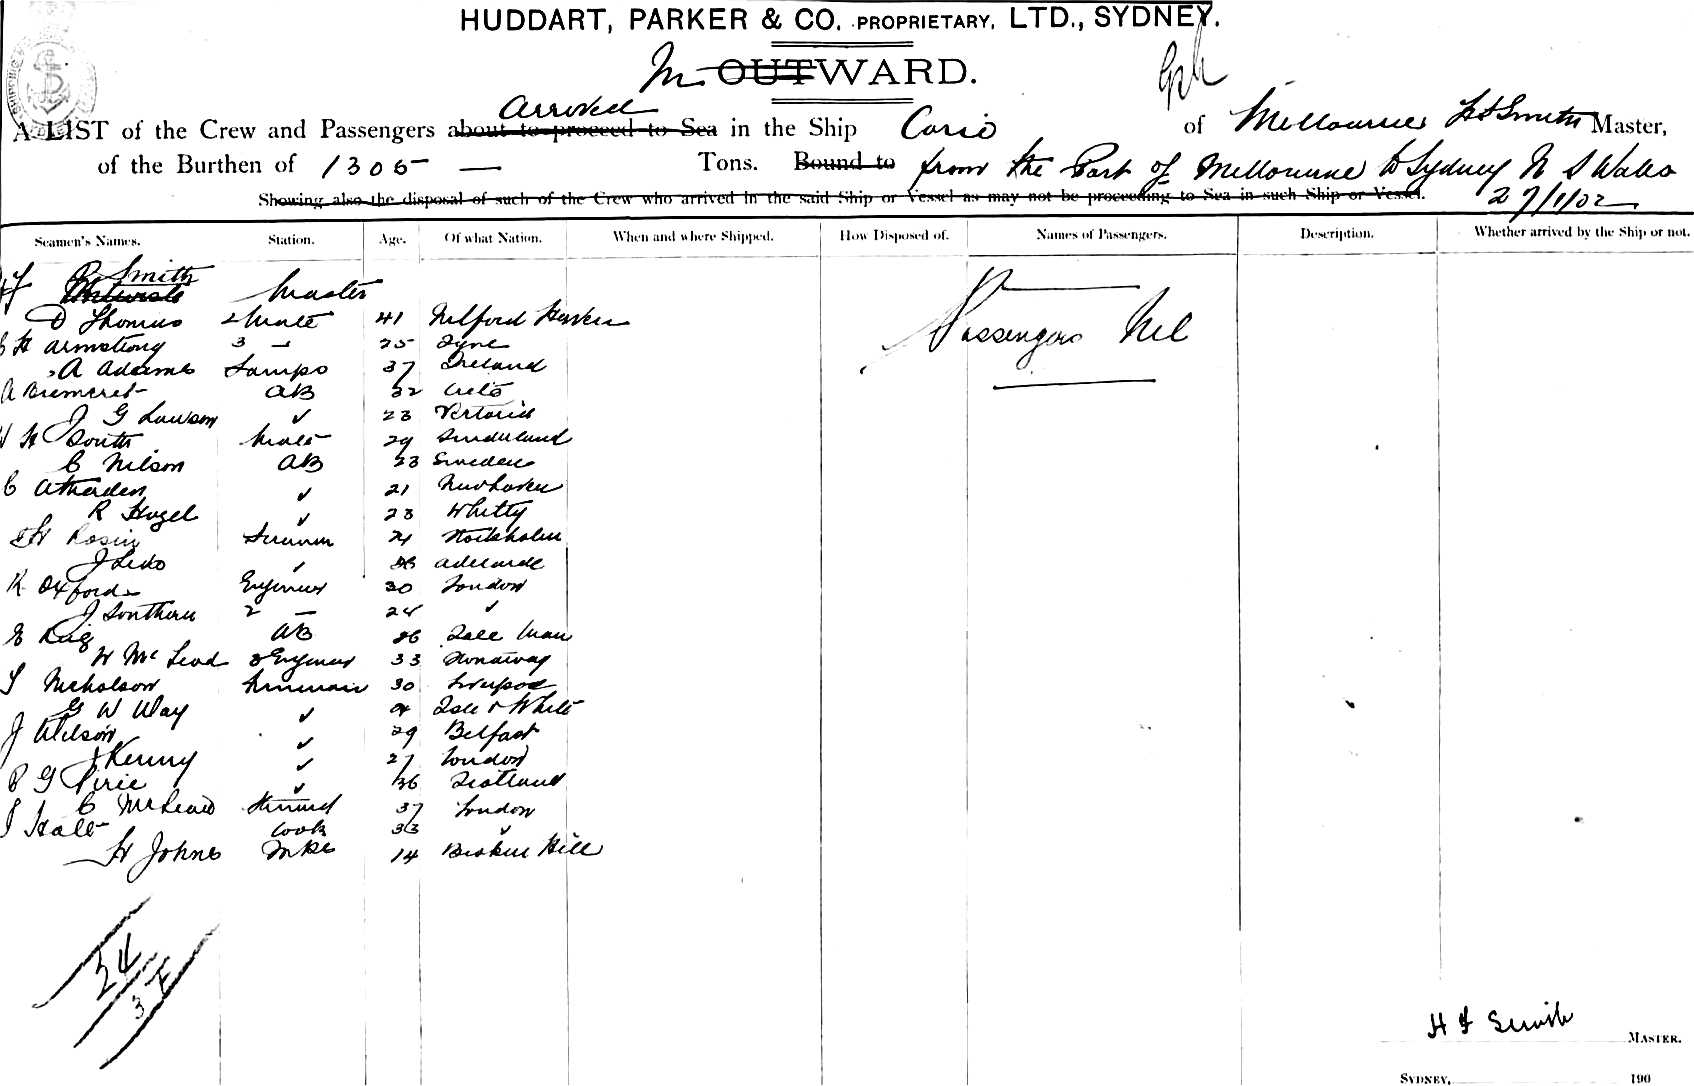 HUDDART, PARKER & CO. PROPRIETARY, LTD., SYDNEY.
In OUTWARD.
A LIST of the Crew and Passengers about to proceed to Sea arrived in the Ship Corio of Melbourne Master,
of the Burthen of 1305 — Tons. Bound to from the Port of Melbourne to Sydney N S Wales
Showing also the disposal of such of the Crew who arrived in the said Ship or Vessel as may not be proceeding to Sea in such Ship or Vessel. 27/1/02
Seamen's Names. Station. Age. Of what Nation. When and where Shipped. How Disposed of. Names of Passengers. Description. Whether arrived by the Ship or not.
Smith Master
D Thomas 2 Mate 41 Milford Haven
H Armstrong 3 — 25 Tyne
A Adams Lamps 37 Ireland
A 22
J G Lawson ✓ 23 Victoria
H South Mate 29 Sunderland
C Nilson AB 23 Sweden
C Atherden ✓ 21 Newhaven
R Hugel ✓ 23 Whitby
H Rosin 21 Stockholm
J ✓ Adelaide
K Oxford Engineer 30 London
J Southern 2 — 24 ✓
E AB 26 Isle Man
H McLeod 3 Engineer 33
Nicholson Fireman 30 Liverpool
G W Way ✓ Isle of White
J Wilson ✓ 29 Belfast
J Kenny ✓ 27 London
P G Pirie ✓ 36 Scotland
C McLeod Steward 37 London
Hall Cook 33 ✓
H Johns 14 Broken Hill
Passengers Nil
24
3
H F Smith
MASTER.
SYDNEY, 190